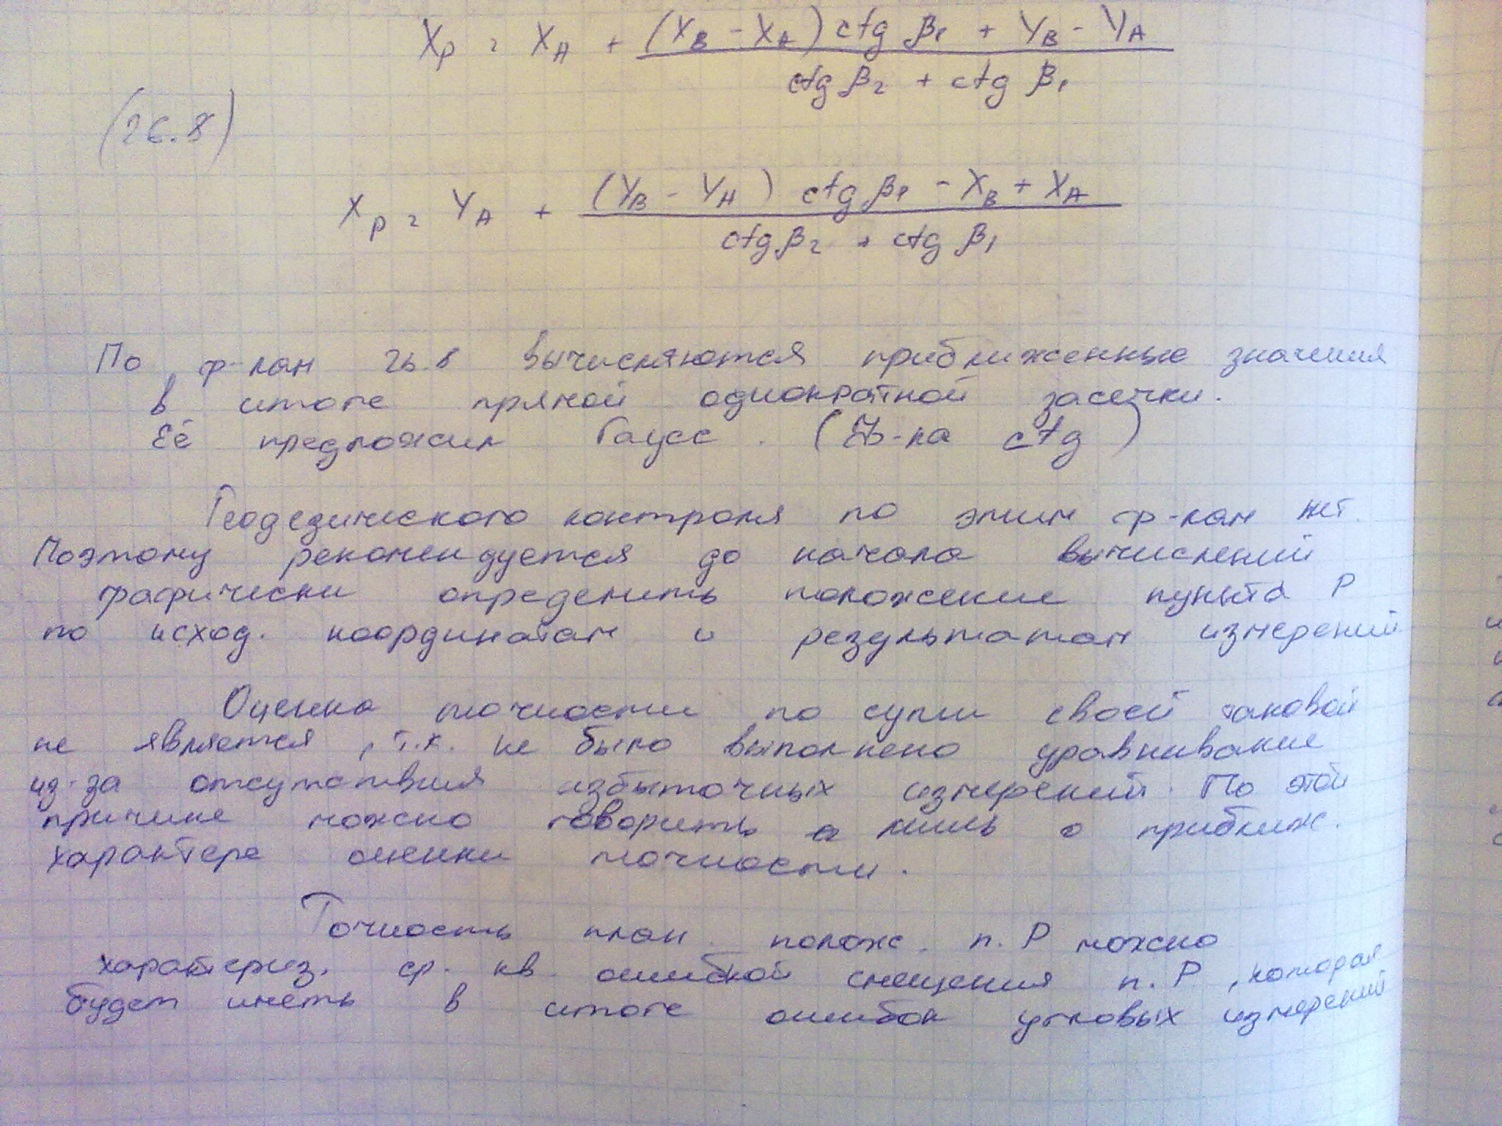 X_P = X_A + (X_B - X_A) ctg β_1 + Y_B - Y_A
ctg β_2 + ctg β_1
(26.8)
X_P = Y_A + (Y_B - Y_A) ctg β_1 - X_B + X_A
ctg β_2 + ctg β_1
По ф-лам 26.8 вычисляются приближенные значения
в итоге прямой однократной засечки.
Её предложил Гаусс. (ф-ла ctg)
Геодезического контроля по этим ф-лам нет.
Поэтому рекомендуется до начала вычислений
графически определить положение пункта P
по исход. координатам и результатам измерений
Оценка точности по сути своей таковой
не является, т.к. не было выполнено уравнивание
из-за отсутствия избыточных измерений. По этой
причине можно говорить лишь о приближ.
характере оценки точности.
Точность план. полож. п. P можно
характериз. ср. кв. ошибкой смещения п. P, которая
будет иметь в итоге ошибок угловых измерений